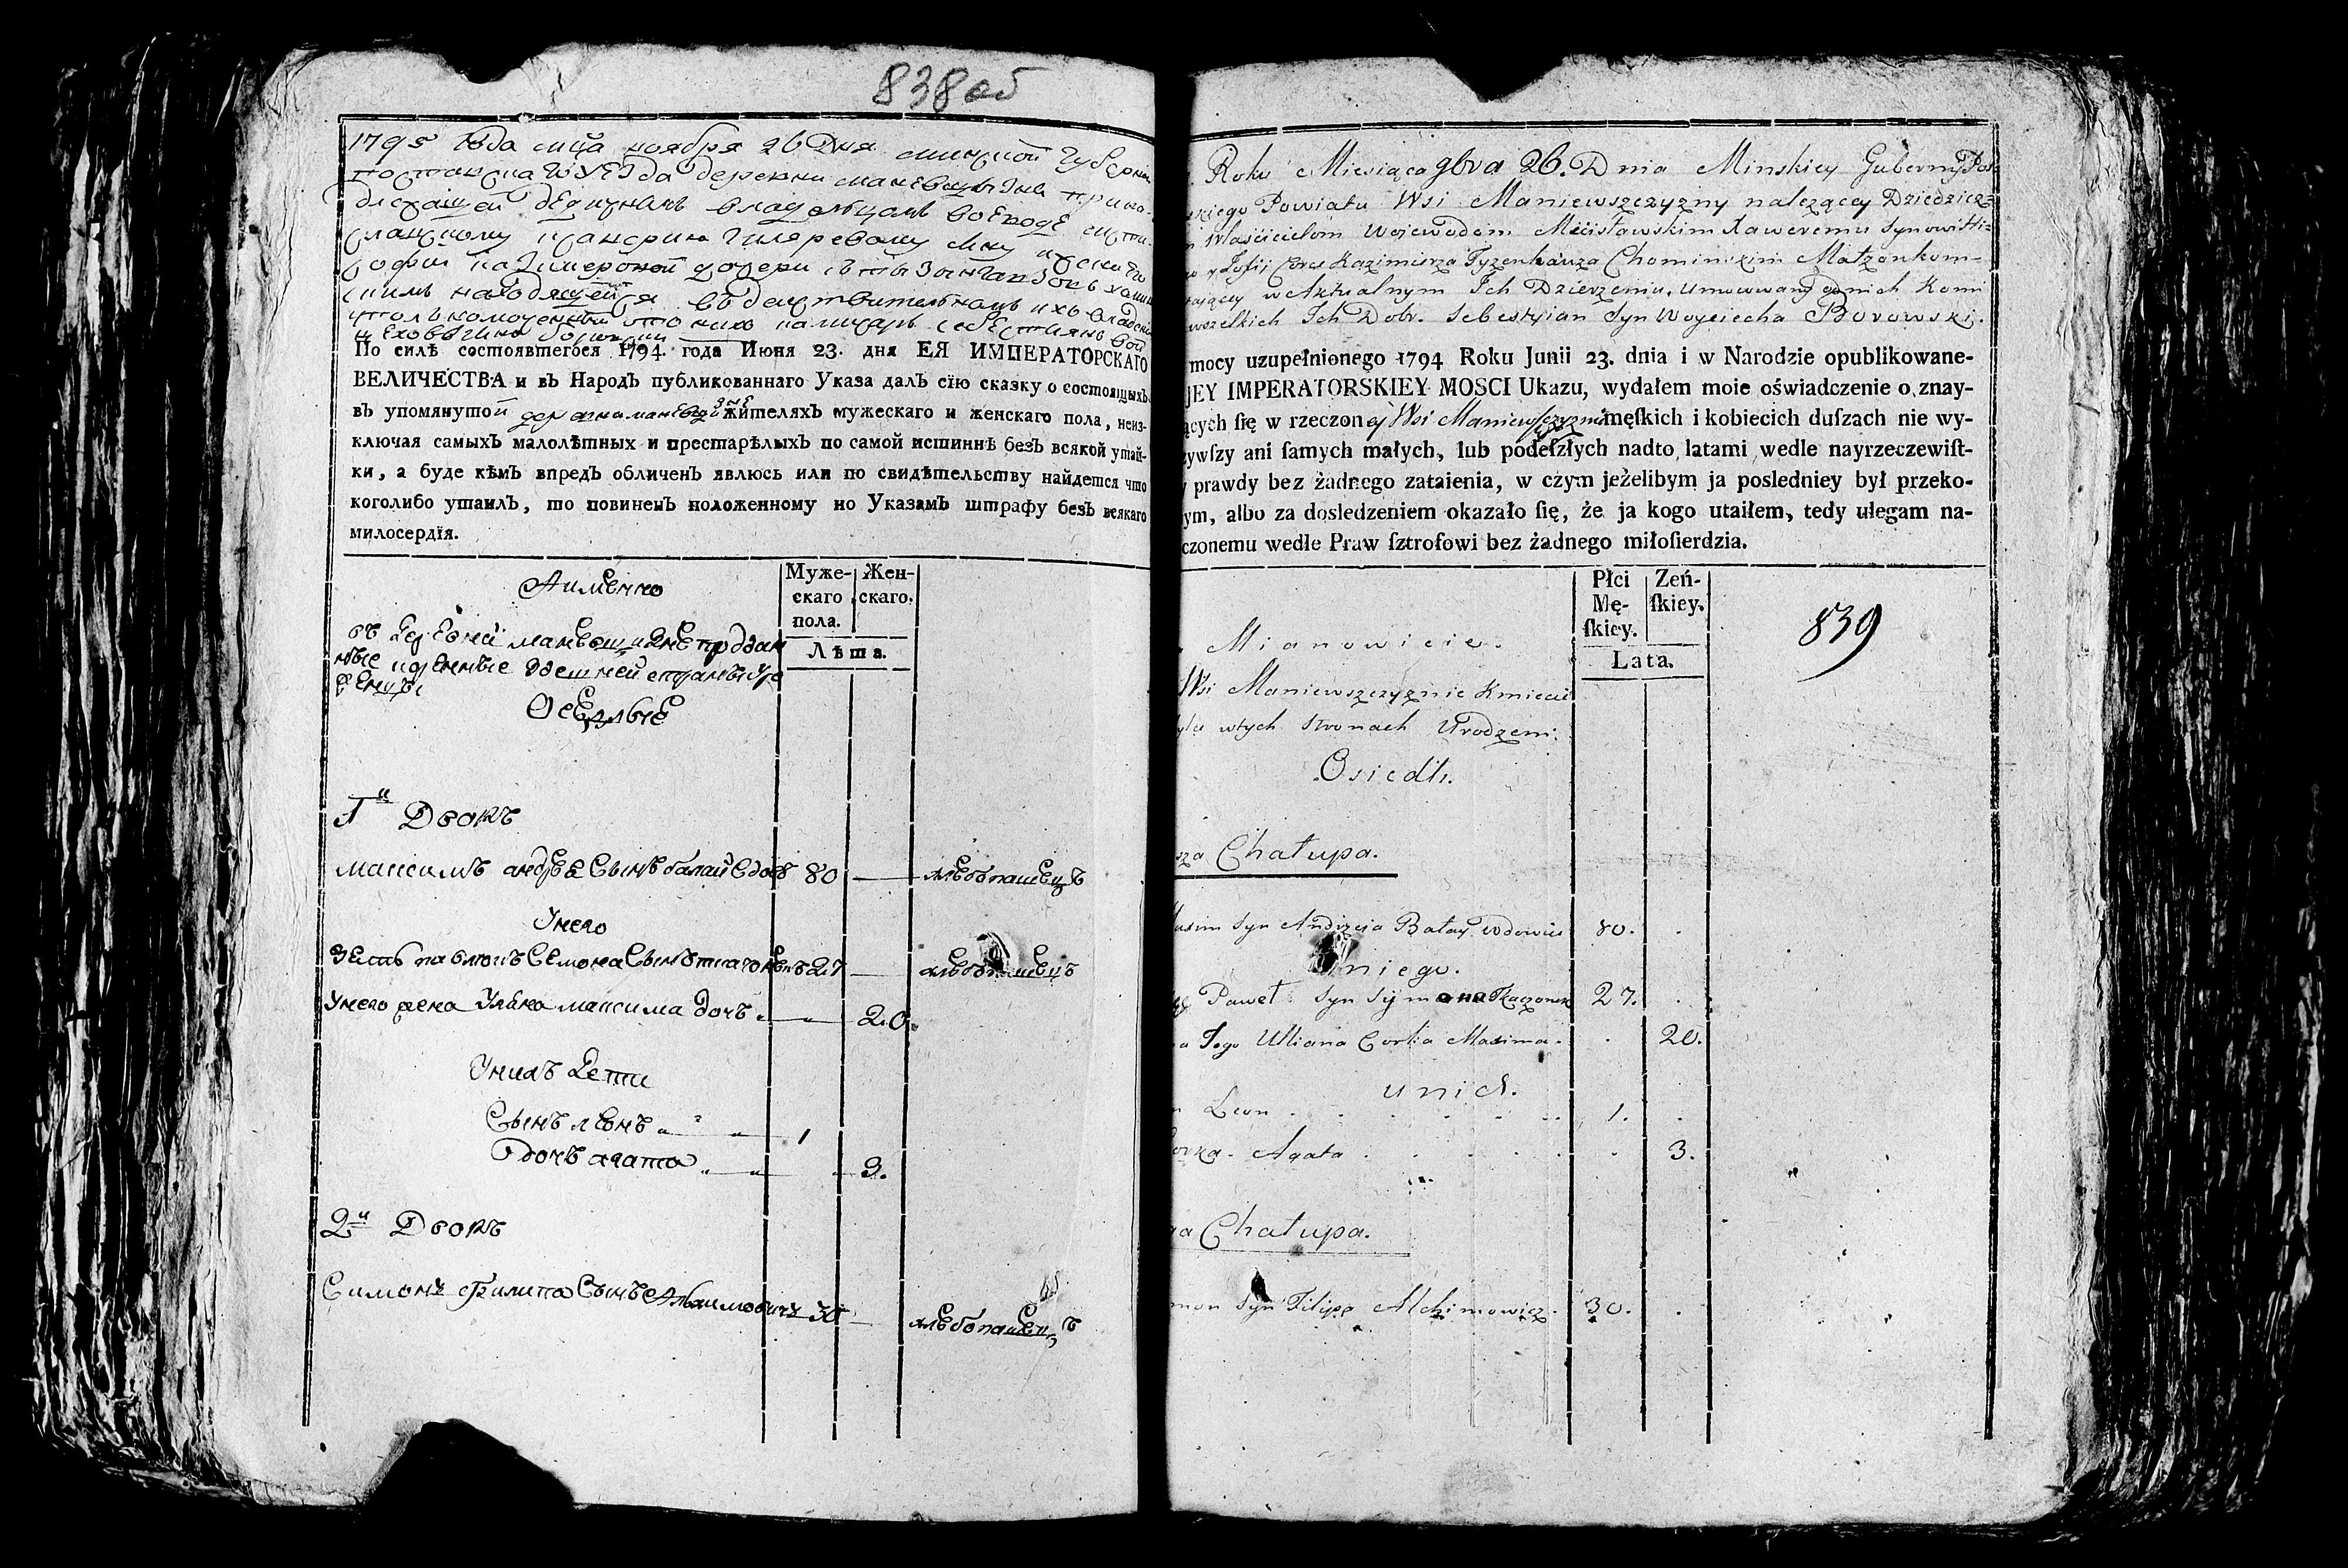 838 об
1795 года мца ноября 26 Дня минской Губернии
деревни
По силѣ состоявшегося 1794. года Июня 23. дня ЕЯ ИМПЕРАТОРСКАГО
ВЕЛИЧЕСТВА и въ Народъ публикованнаго Указа далъ сїю сказку о состоящихъ
въ упомянутой жителяхъ мужескаго и женскаго пола, неиз-
ключая самыхъ малолѣтныхъ и престарѣлыхъ по самой истиннѣ безъ всякой утай-
ки, а буде кѣмъ впредъ обличенъ явлюсь или по свидѣтельству найдется что
коголибо утаилъ, то повиненъ положенному по Указамъ штрафу безъ всякаго
милосердїя.
Аимѣнно
Муже-
скаго
пола.
Жен-
скаго.
Лѣта.
Осѣдлые
1й Дворъ
максимъ андрѣЕ Сынъ балай вдовъ 80 — хлѣбопашецъ
Унего
зять павлюкъ Семона Сынъ ткачонокъ 27 — хлѣбопашецъ
Унего жена Уляна максима дочъ 20.
Унихъ Дети
Сынъ леонъ 1
дочъ агата 3.
2й Дворъ
Симонъ Филипа Сынъ Альхимовичъ 30 — хлѣбопашецъ
Roku Miesiąca 9bra 26. Dnia Minskiey Gubernij
skiego Powiatu Wsi Maniewszczyzny należącey Dziedzicz=
Właścicielom Wojewodom Mścisławskim Xaweremu Synowi Hi=
Zofij Corce Kazimierza Tyzenhauza Chominskim Małżonkom=
w Aktualnym Ich Dzierżeniu, Umocowany od nich Komi
wszelkich Ich Dobr. Sebestyian Syn Woyciecha Borowski.
mocy uzupełnionego 1794 Roku Junii 23. dnia i w Narodzie opublikowane-
JEY IMPERATORSKIEY MOSCI Ukazu, wydałem moie oświadczenie o znay-
ących się w rzeczoney Wsi Maniewszczyznie męſkich i kobiecich duſzach nie wy-
ywſzy ani ſamych małych, lub podeſzłych nadto latami wedle nayrzeczewiſt-
y prawdy bez żadnego zataienia, w czym jeżelibym ja posledniey był przeko-
ym, albo za dosledzeniem okazało ſię, że ja kogo utaiłem, tedy ulegam na-
czonemu wedle Praw ſztrofowi bez żadnego miłoſierdzia.
Mianowicie.
Płci
Mę-
ſkiey.
Zeń-
ſkiey.
Lata.
839
Wsi Maniewszczyznie Kmiecie
w tych stronach Urodzeni.
Osiedli.
sza Chałupa.
axim Syn Andrzeja Bałay wdowiec 80. .
niego.
Paweł Syn Symona Tkaczonek 27. .
a Jego Ulliana Corka Maxima . 20.
unich.
n Leon . 1. .
orka Agata . . 3.
ga Chałupa.
mon Syn Filipa Alchimowicz. 30. .